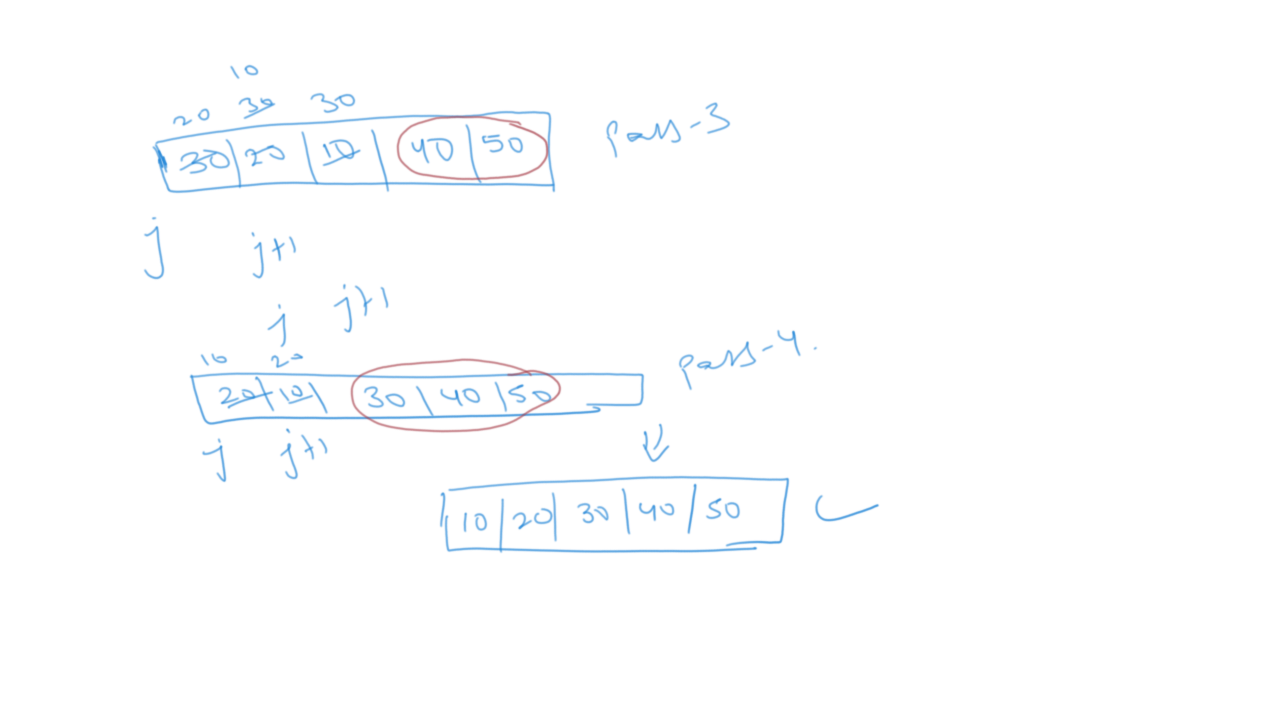 10
20 30 30
30 20 10 40 50 pass-3
j j+1
j j+1
10 20 pass-4.
20 10 30 40 50
j j+1
10 20 30 40 50